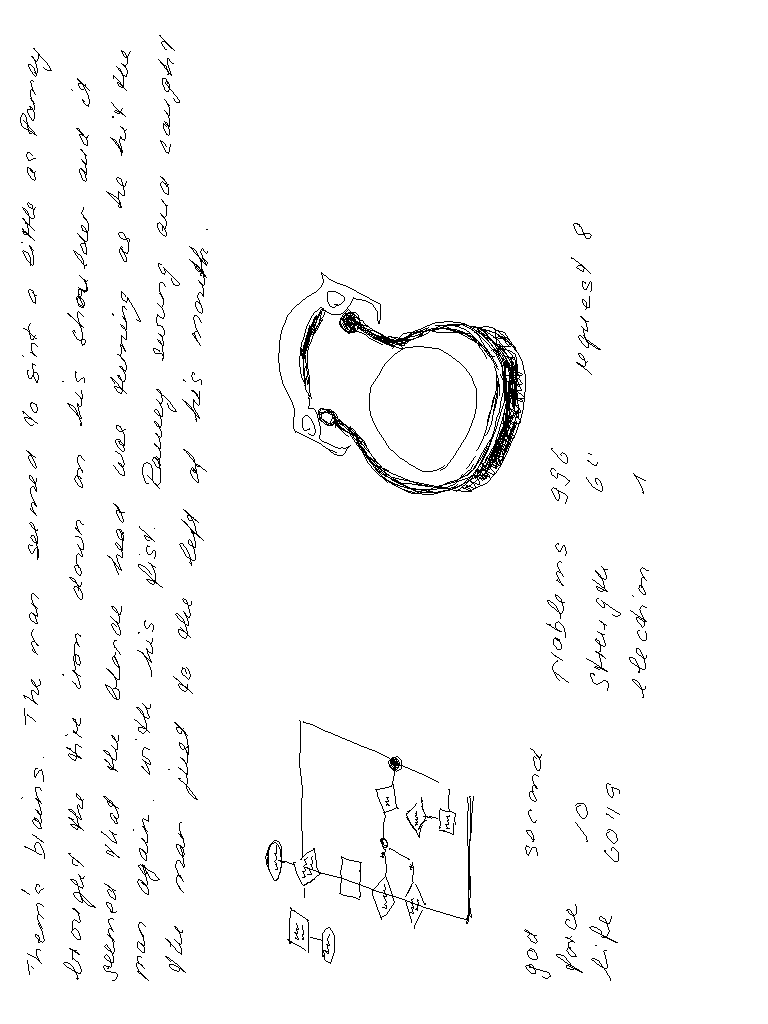 Them's brains. The man seemed to sint a little as Pamey
brought the tire iron down on his shoulder and it
seemed that the blonde head was turning as he hit the
man again. with his fist. Ramey swung and caught
the man just to the left of his mouth.
god second problems 996 request 8
force 10 strength 6
life 6049 election 1